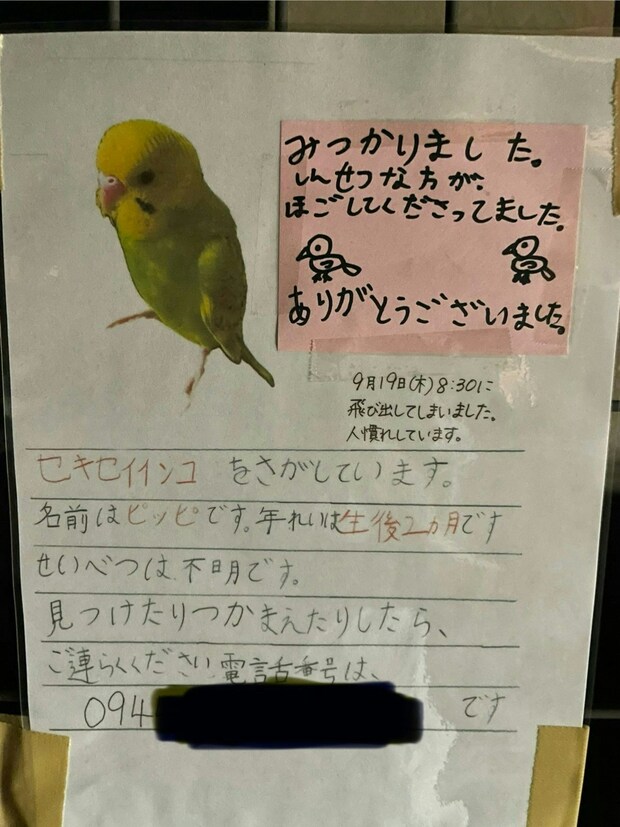 みつかりました。
しんせつな方が、
ほごしてくださってました。
ありがとうございました。
9月19日(木)8:30に
飛び出してしまいました。
人慣れしています。
セキセイインコ をさがしています。
名前はピッピです。年れいは生後2ヵ月です
せいべつは不明です。
見つけたりつかまえたりしたら、
ご連らくください電話番号は、
094 です